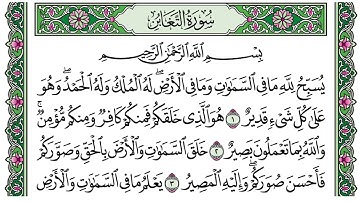 سُورَةُ التَّغَابُنِ
بِسْمِ اللَّهِ الرَّحْمَٰنِ الرَّحِيمِ
يُسَبِّحُ لِلَّهِ مَا فِي السَّمَاوَاتِ وَمَا فِي الْأَرْضِ ۖ لَهُ الْمُلْكُ وَلَهُ الْحَمْدُ ۖ وَهُوَ
عَلَىٰ كُلِّ شَيْءٍ قَدِيرٌ ١ هُوَ الَّذِي خَلَقَكُمْ فَمِنكُمْ كَافِرٌ وَمِنكُم مُّؤْمِنٌ ۚ
وَاللَّهُ بِمَا تَعْمَلُونَ بَصِيرٌ ٢ خَلَقَ السَّمَاوَاتِ وَالْأَرْضَ بِالْحَقِّ وَصَوَّرَكُمْ
فَأَحْسَنَ صُوَرَكُمْ ۖ وَإِلَيْهِ الْمَصِيرُ ٣ يَعْلَمُ مَا فِي السَّمَاوَاتِ وَالْأَرْضِ